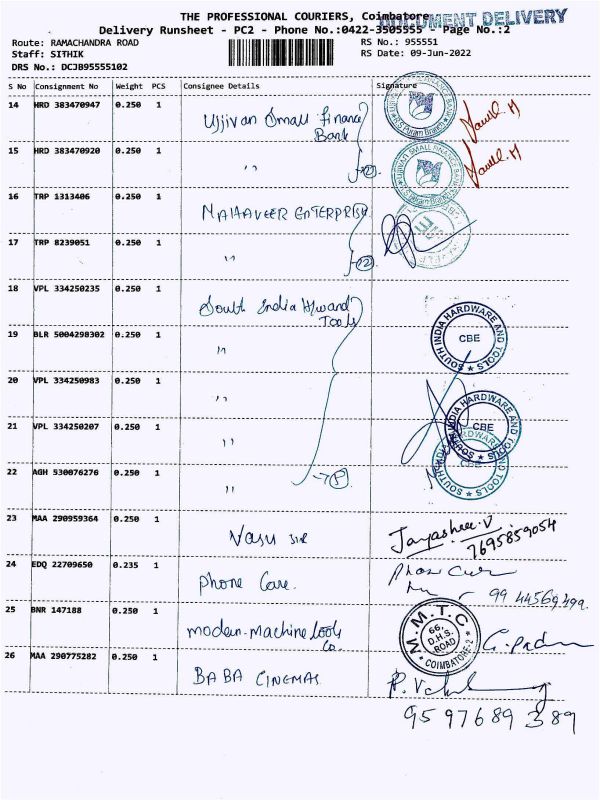 THE PROFESSIONAL COURIERS, Coimbatore
DOCUMENT DELIVERY
Delivery Runsheet - PC2 - Phone No.:0422-3505555 - Page No.:2
Route: RAMACHANDRA ROAD
RS No.: 955551
Staff: SITHIK
RS Date: 09-Jun-2022
DRS No.: DCJB95555102
S No Consignment No Weight PCS Consignee Details Signature
14 HRD 383470947 0.250 1 Ujjivan Small Finance
Bank
15 HRD 383470920 0.250 1 "
16 TRP 1313406 0.250 1 MAHAVEER ENTERPRISE
17 TRP 8239051 0.250 1 "
18 VPL 334250235 0.250 1 South India
Tools
SOUTH INDIA HARDWARE AND TOOLS
CBE
19 BLR 5004298302 0.250 1 "
20 VPL 334250983 0.250 1 "
21 VPL 334250207 0.250 1 "
SOUTH INDIA HARDWARE AND TOOLS
CBE
22 AGH 530076276 0.250 1 "
CBE
23 MAA 290959364 0.250 1 Vasu Jayashree.V
7695859054
24 EDQ 22709650 0.235 1 Phone Care.
25 BNR 147188 0.250 1 modern machine tools
Co.
M.M.T.C
66,
D.H.S.
ROAD
COIMBATORE-2
26 MAA 290775282 0.250 1 BABA CINEMAS
9597689389